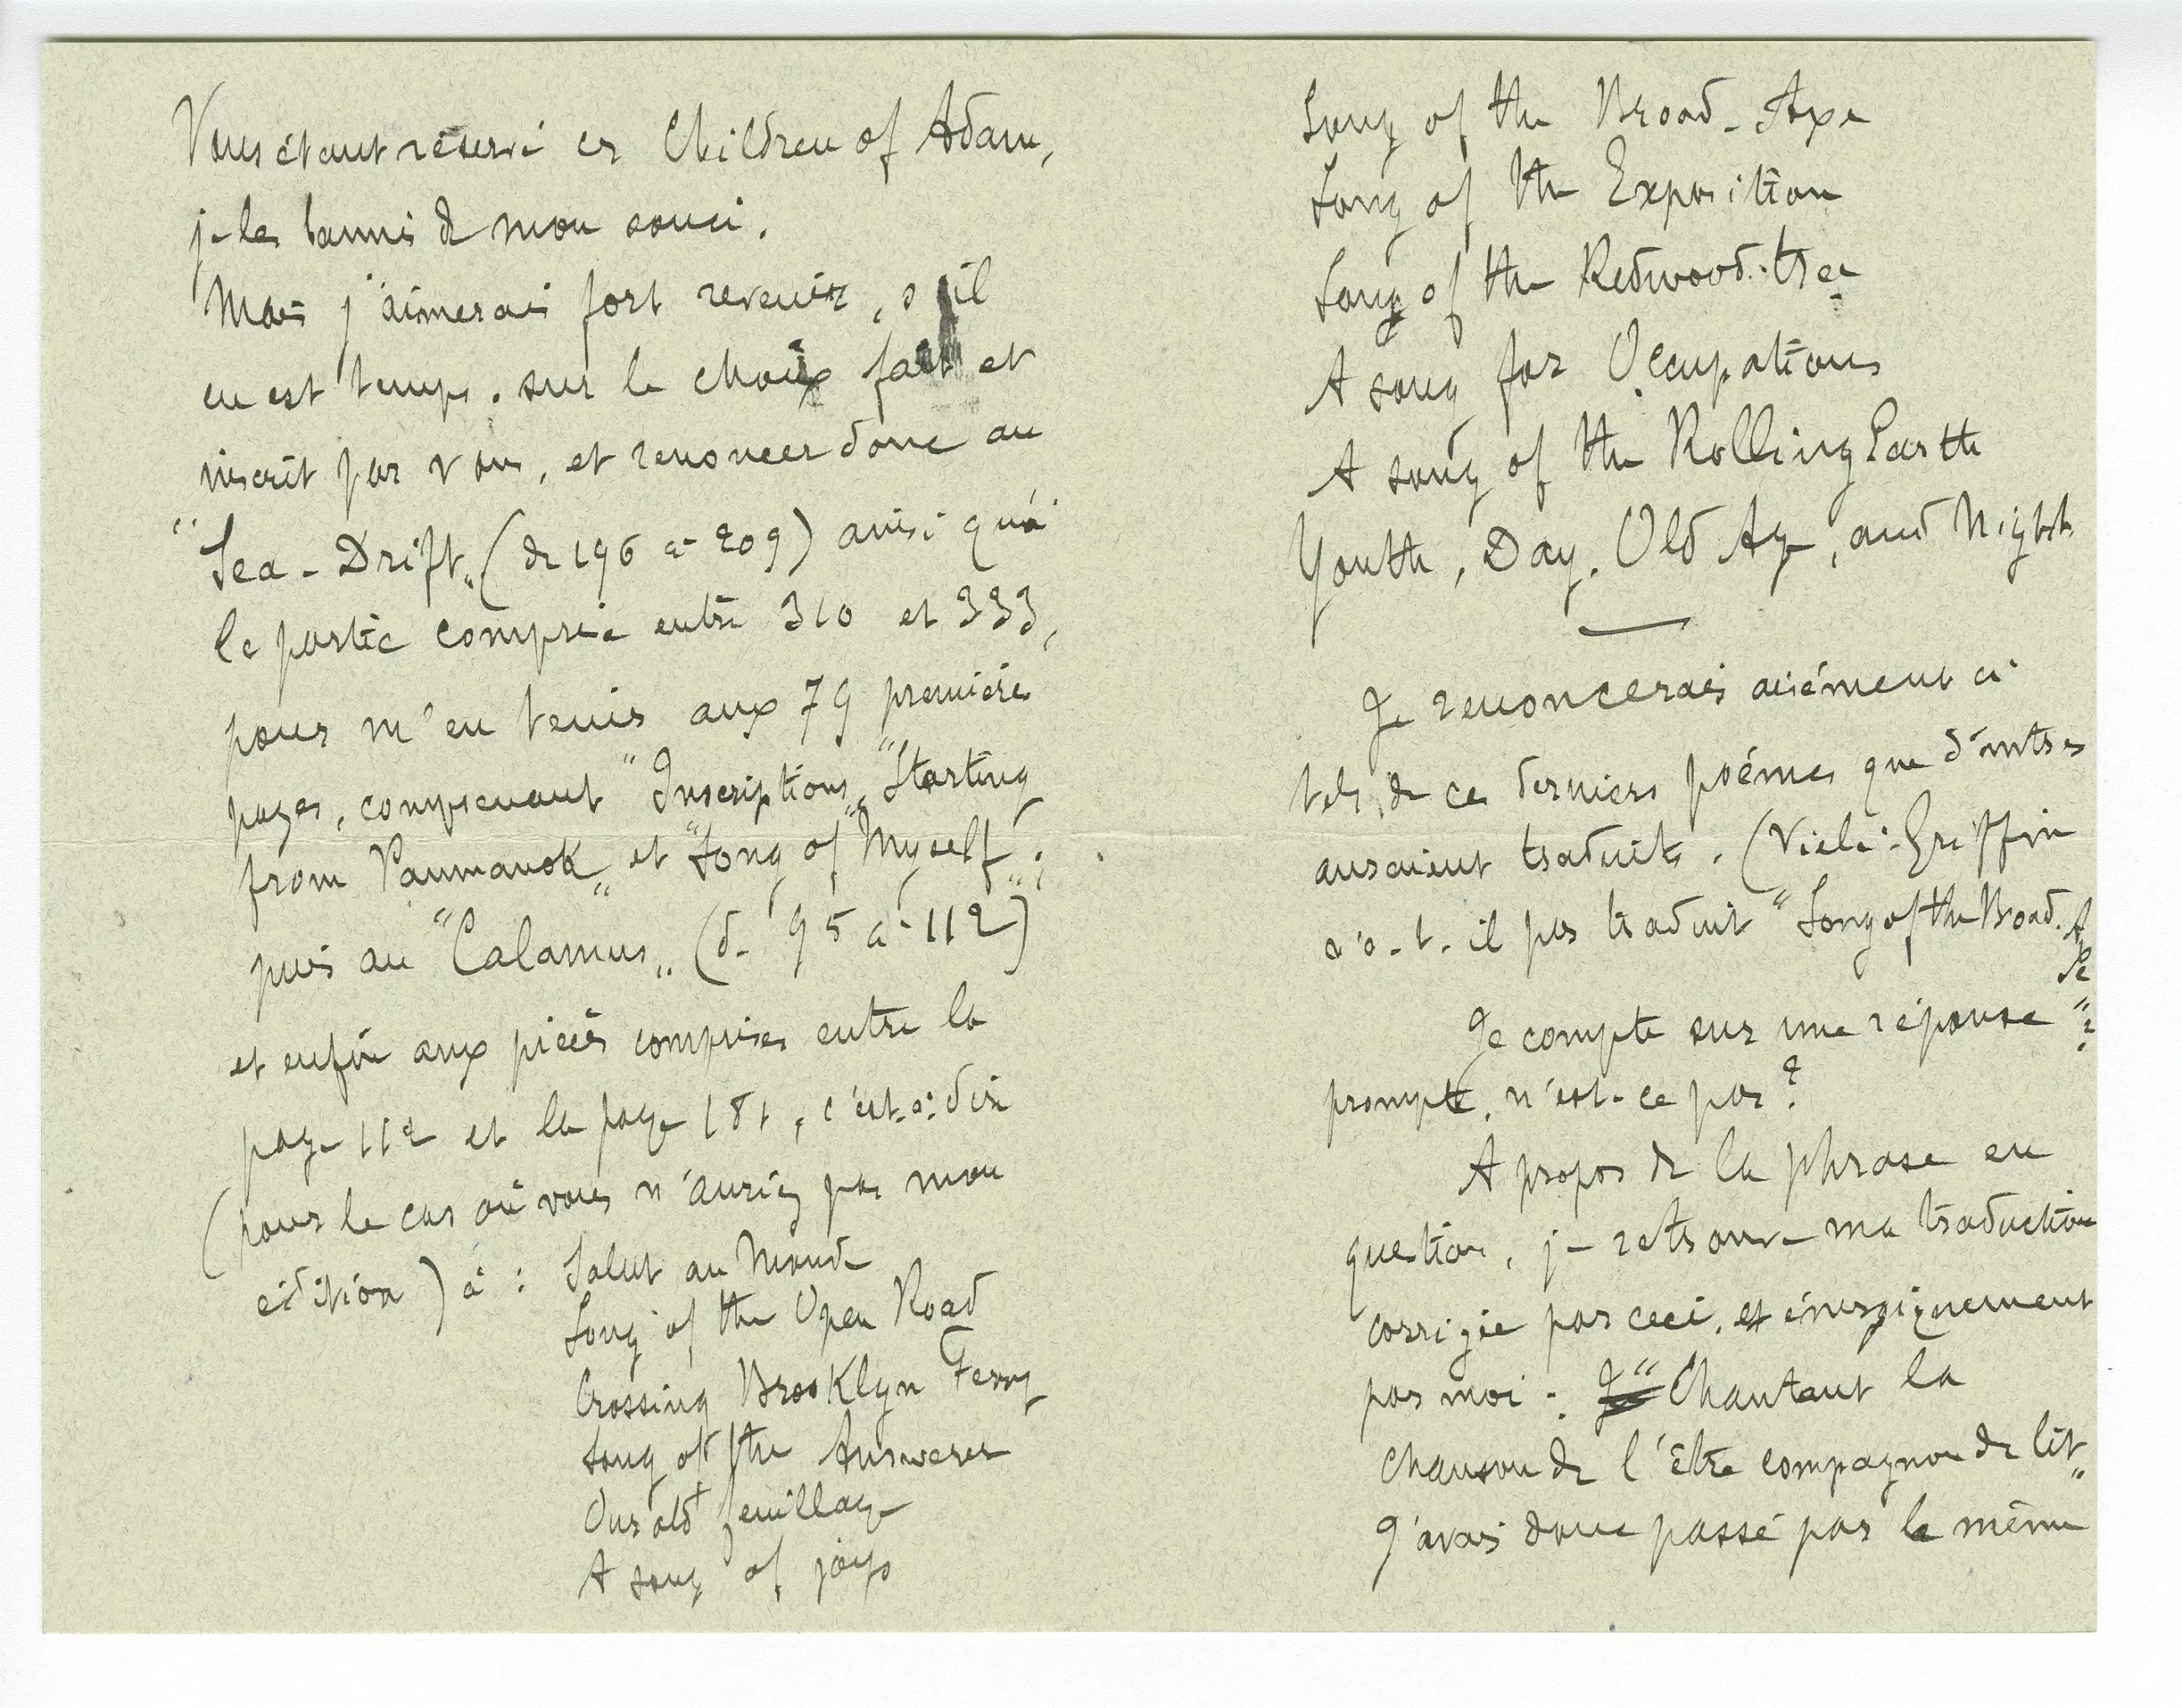 Vous étant réservé les Children of Adam,
je les bannis de mon souci.
Mais j'aimerais fort revenir, s'il
en est temps. sur le choix fait et
inscrit par vous, et renoncer donc au
"Sea-Drift" (de 196 à 209) ainsi qu'à
la partie comprise entre 310 et 333,
pour m'en tenir aux 79 premières
pages, comprenant "Inscriptions" "Starting
from Paumanok" et "Song of Myself";
puis au "Calamus" (de 95 à 112)
et enfin aux pièces comprises entre la
page 112 et la page 181, c'est-à-dire
(pour le cas où vous n'auriez pas mon
édition) à : Salut au Monde
Song of the Open Road
Crossing Brooklyn Ferry
Song of the Answerer
Our old feuillage
A song of joys
Song of the Broad-Axe
Song of the Exposition
Song of the Redwood-tree
A song for Occupations
A song of the Rolling Earth
Youth, Day, Old Age, and Night
Je renoncerais aisément à
tels de ces derniers poèmes que d'autres
auraient traduits. (Vielé-Griffin
n'a-t-il pas traduit "Song of the Broad-Axe"?
Je compte sur une réponse
prompte, n'est-ce pas?
A propos de la phrase en
question, je retrouve ma traduction
corrigée par ceci, et énergiquement
par moi : "Chantant la
chanson de l'être compagnon de lit"
J'avais donc passé par le même